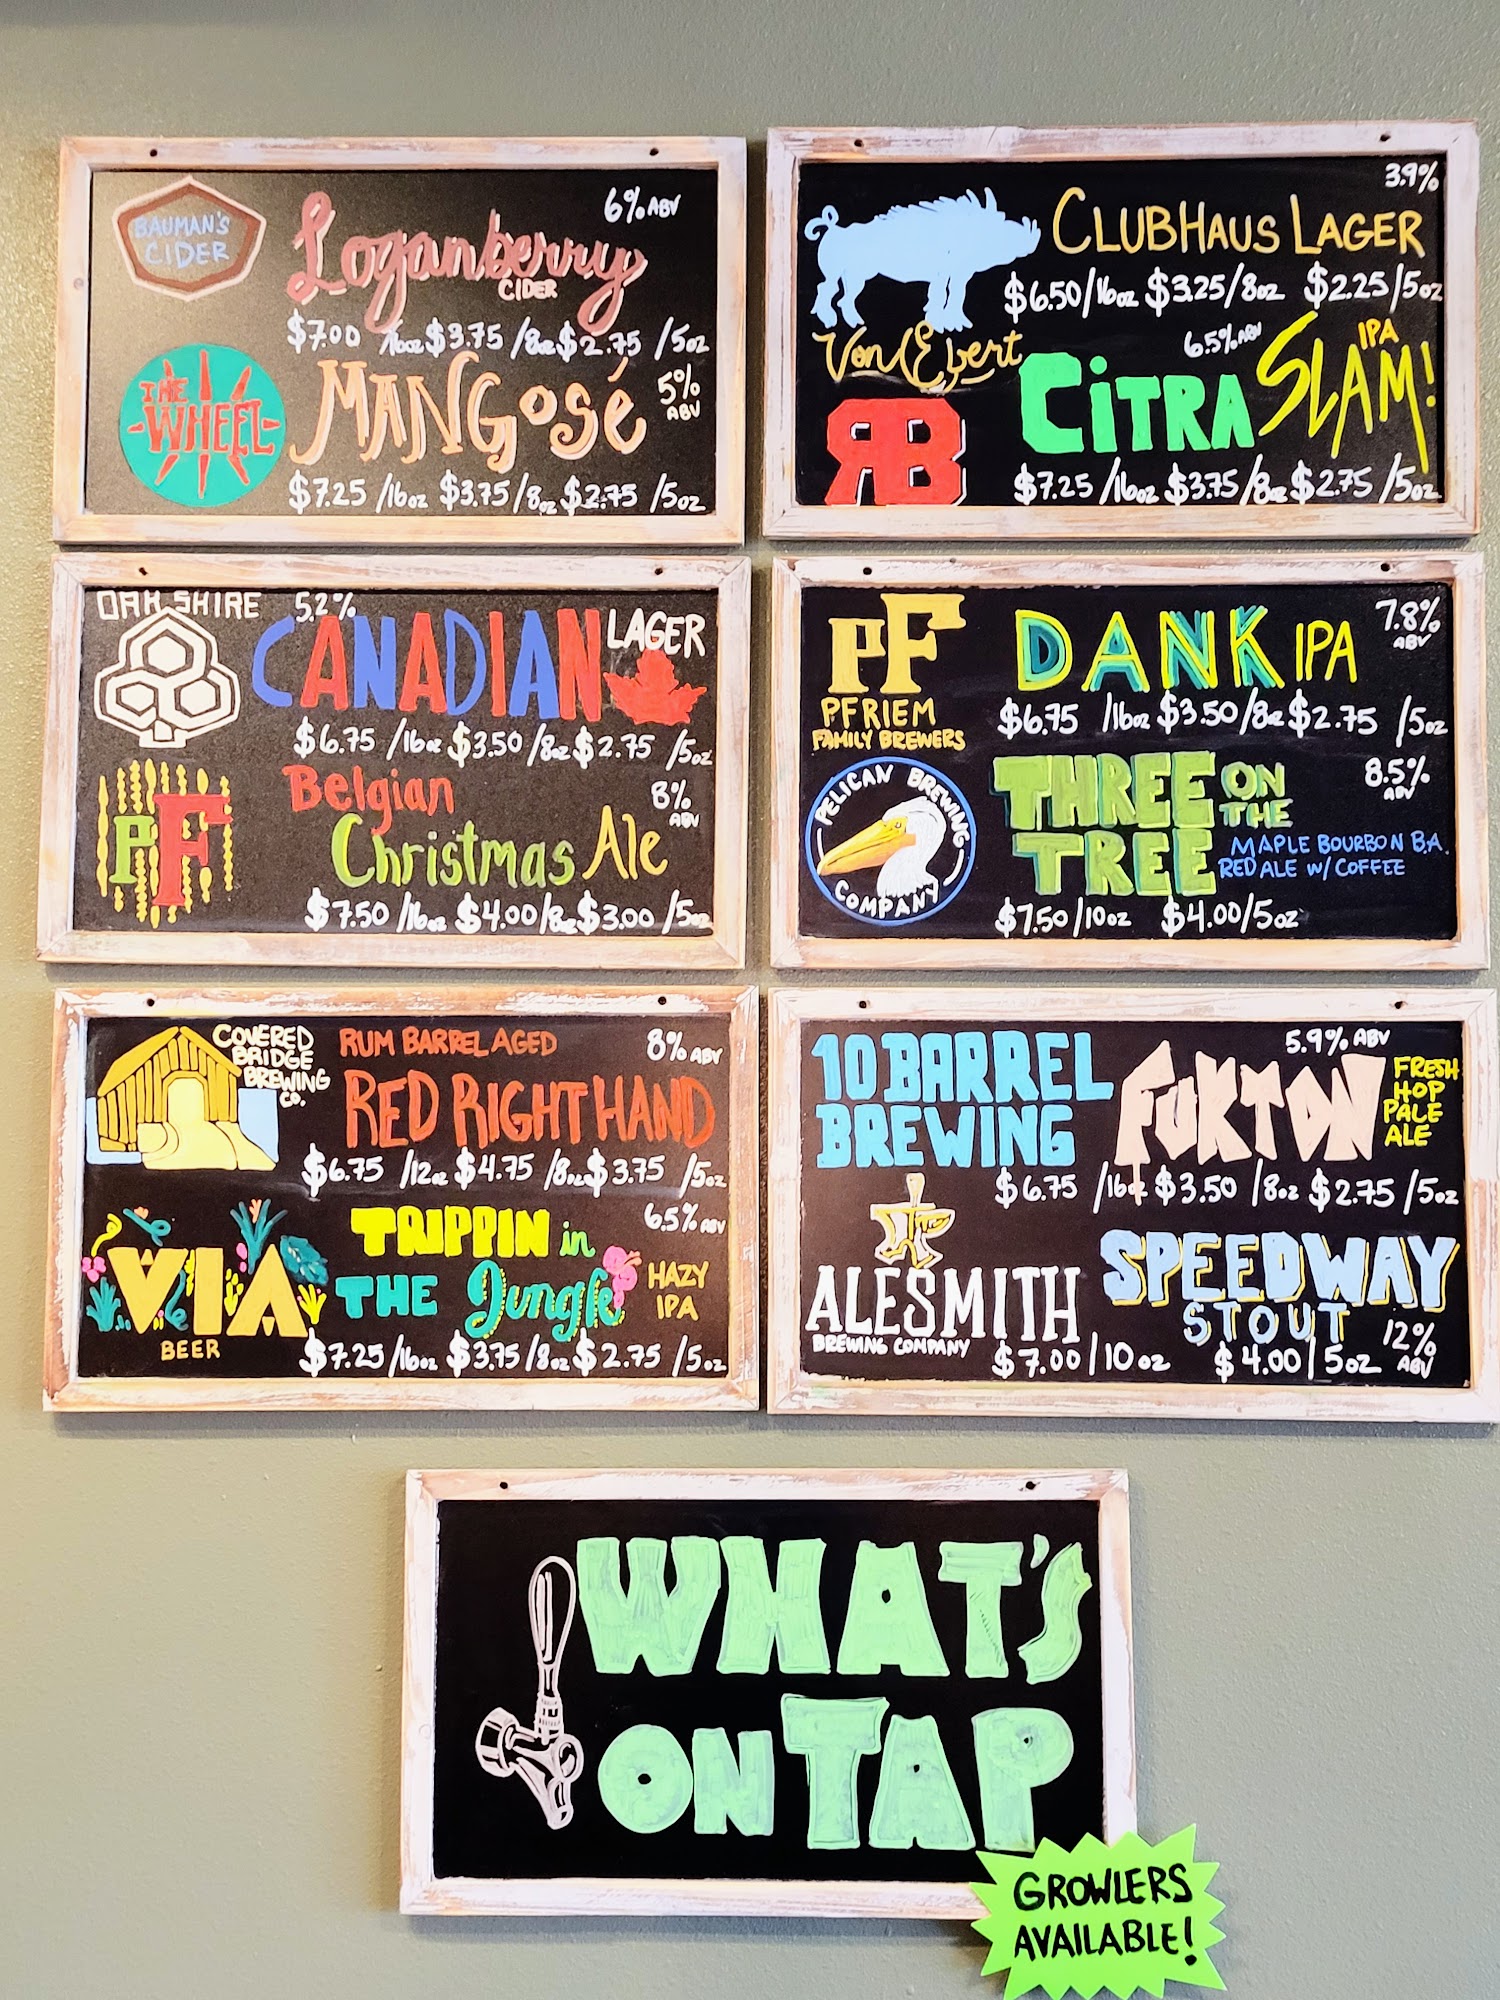 BAUMAN'S
CIDER
Loganberry
CIDER
6% ABV
$7.00 16oz $3.75 /8oz $2.75 /5oz
THE
WHEEL
MANGosé
5%
ABV
$7.25 /16oz $3.75/8oz $2.75 /5oz
3.9%
CLUBHAUS LAGER
$6.50/16oz $3.25/8oz $2.25/5oz
Von Ebert
RB
6.5% ABV
CiTRA SLAM!
IPA
$7.25 /16oz $3.75/8oz $2.75 /5oz
OAKSHIRE 5.2%
CANADIAN LAGER
$6.75 /16oz $3.50 /8oz $2.75 /5oz
PF
Belgian
Christmas Ale
8%
ABV
$7.50 /16oz $4.00/8oz $3.00 /5oz
PF
PFRIEM
FAMILY BREWERS
DANK IPA
7.8%
ABV
$6.75 /16oz $3.50/8oz $2.75 /5oz
PELICAN BREWING
COMPANY
THREE ON
THE
TREE
8.5%
ABV
MAPLE BOURBON B.A.
RED ALE W/ COFFEE
$7.50/10oz $4.00/5oz
COVERED
BRIDGE
BREWING
CO.
RUM BARREL AGED
8% ABV
RED RIGHT HAND
$6.75 /12oz $4.75 /8oz $3.75 /5oz
VIA
BEER
TRIPPIN in
THE Jungle
6.5% ABV
HAZY
IPA
$7.25/16oz $3.75/8oz $2.75 /5oz
10 BARREL
BREWING
5.9% ABV
FUKTON
FRESH
HOP
PALE
ALE
$6.75 /16oz $3.50 /8oz $2.75 /5oz
ALESMITH
BREWING COMPANY
SPEEDWAY
STOUT
12%
ABV
$7.00/10oz $4.00/5oz
WHAT'S
ON TAP
GROWLERS
AVAILABLE!